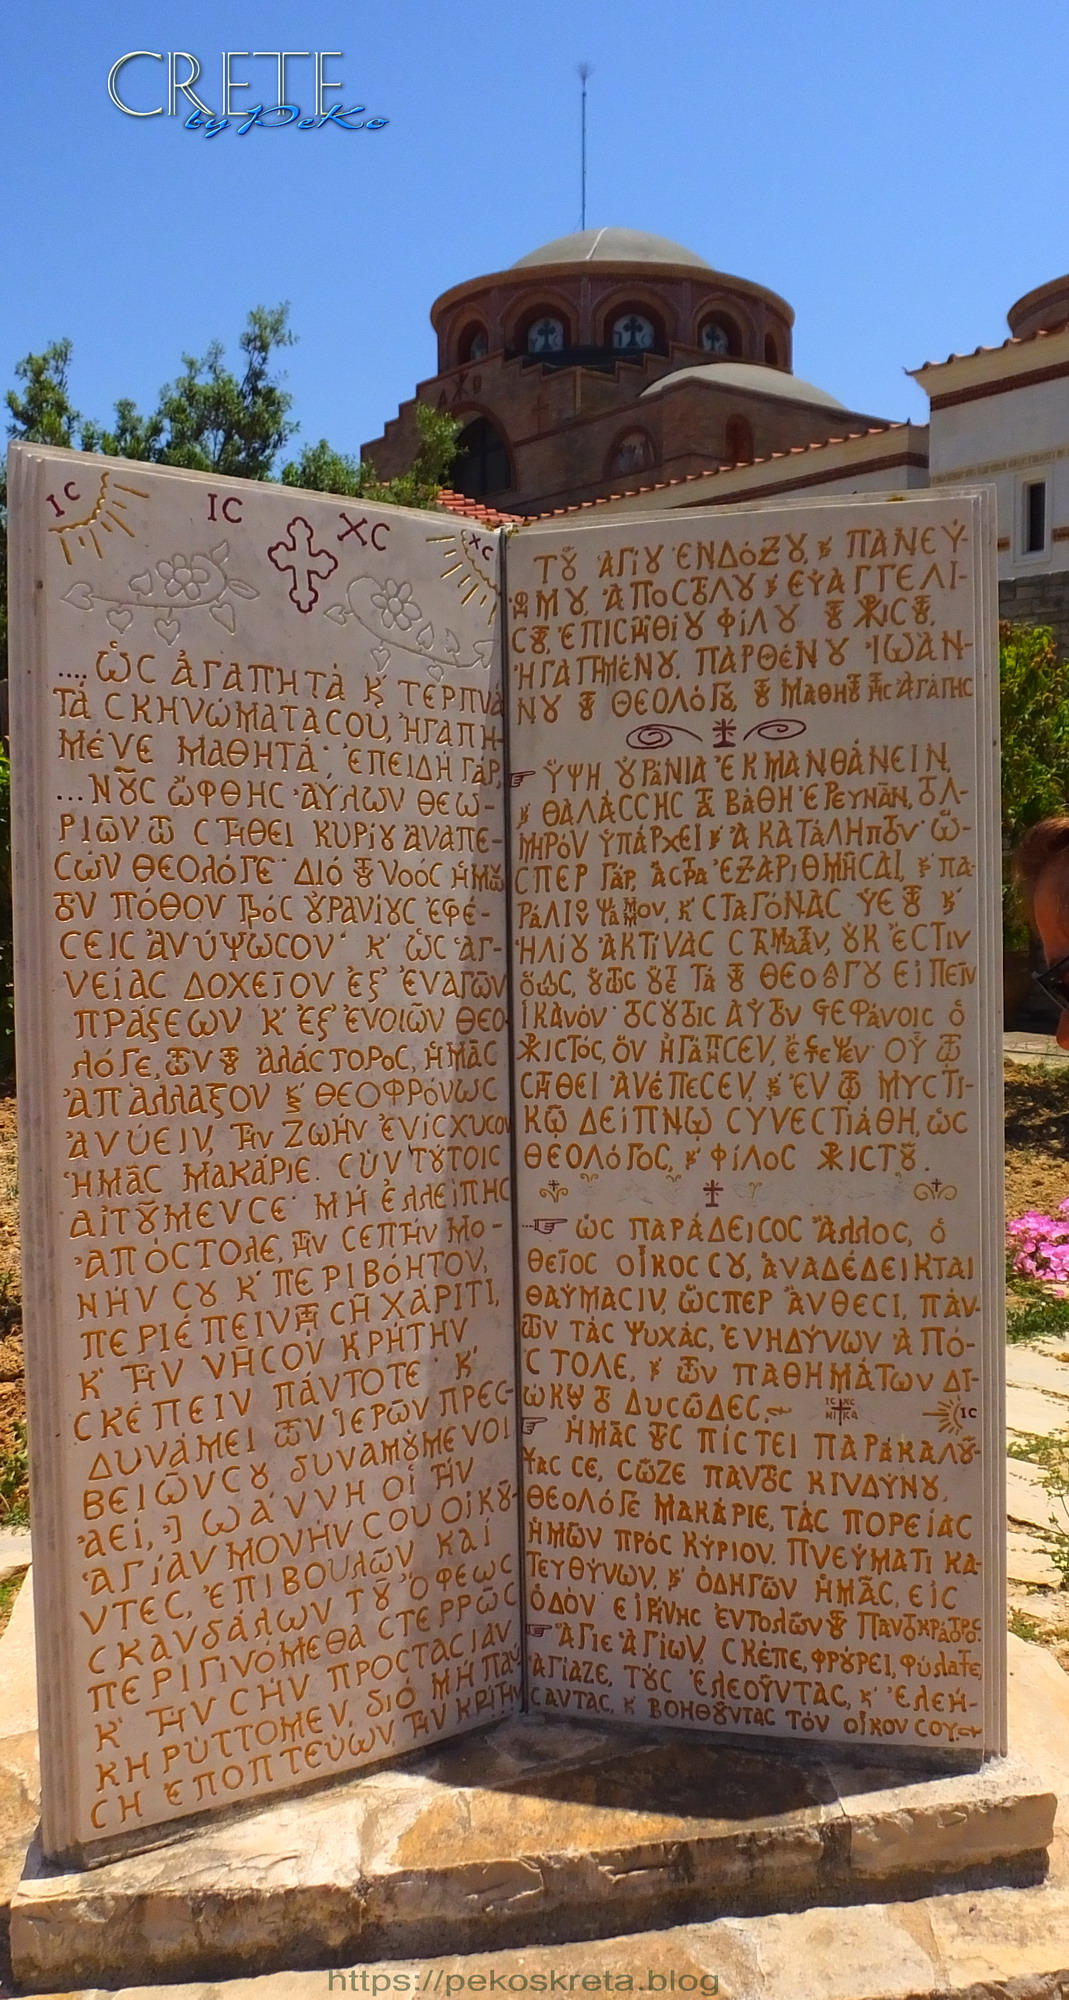 CRETE
by PeKo
ΙC
ΙC ΧC
ΧC
....ὩC ἈΓΑΠΗΤᾺ Κ ΤΕΡΠΝᾺ
ΤᾺ CΚΗΝΏΜΑΤΑ CΟΥ, ἨΓΑΠΗ-
ΜΈΝΕ ΜΑΘΗΤΆ· ἘΠΕΙΔΗ ΓᾺΡ,
...ΝΟΥC ὬΦΘΗC ἈΫΛΩΝ ΘΕΩ-
ΡΙῶΝ CΤΗΘΕΙ ΚΥΡΊΟΥ ἈΝΑΠΕ-
CῺΝ ΘΕΟΛΌΓΕ· ΔΙΌ ΝΟΌC ἩΜῶ
ΠΌΘΟΝ ΠΡΌC ΟΥΡΑΝΊΟΥC ἘΦΈ-
CΕΙC ἈΝΎΨΩCΟΝ· Κ ὩC ἉΓ-
ΝΕΊΑC ΔΟΧΕΪΟΝ ἘΞ ἘΝΑΓῶΝ
ΠΡΆΞΕΩΝ Κ ἘΞ ἘΝΟΙῶΝ ΘΕΟ-
ΛΌΓΕ, ἈΛΆCΤΟΡΟC, ἩΜᾶC
ἈΠΆΛΛΑΞΟΝ Κ ΘΕΟΦΡΌΝΩC
ἈΝΎΕΙΝ, ΤΗΝ ΖΩΉΝ ἘΝΊCΧΥCΟΝ
ἩΜᾶC ΜΑΚΆΡΙΕ. CῪΝ ΤΟΎΤΟΙC
ΑἸΤΟΥΜΕΝ CΕ· ΜΉ ἘΛΛΕΊΠΗC
ἈΠΌCΤΟΛΕ, ΤΗΝ CΕΠΤΉΝ ΜΟ-
ΝΉΝ CΟΥ Κ ΠΕΡΙΒΌΗΤΟΝ,
ΠΕΡΙΈΠΕΙΝ ΤΗ Cῌ ΧΆΡΙΤΙ,
Κ ΤΗΝ ΝΗCΟΝ ΚΡΉΤΗΝ
CΚΈΠΕΙΝ ΠΆΝΤΟΤΕ· Κ
ΔΥΝΆΜΕΙ ΤῶΝ ἹΕΡῶΝ ΠΡΕC-
ΒΕΙῶΝ CΟΥ ΔΥΝΑΜΟΎΜΕΝΟΙ
ἈΕΊ, ἸΩΆΝΝΗ ΟἹ ΤΉΝ
ἉΓΊΑΝ ΜΟΝΉΝ CΟΥ ΟἸΚΟΥ-
ΝΤΕC, ἘΠΙΒΟΥΛῶΝ ΚΑΙ
CΚΑΝΔΆΛΩΝ ΤΟΥ ὌΦΕΩC
ΠΕΡΙΓΙΝΌΜΕΘΑ CΤΕΡΡῶC
Κ ΤΗΝ CΉΝ ΠΡΟCΤΑCΊΑΝ
ΚΗΡΎΤΤΟΜΕΝ, ΔΙΌ ΜΉ ΠΑΎ
CΗ ἘΠΟΠΤΕΎΩΝ, ΤΗΝ ΚΡΉΤΗΝ
ΤΟΥ ἉΓΊΟΥ ἘΝΔΌΞΟΥ, Κ ΠΑΝΕΥ-
ΦΉΜΟΥ, ἈΠΟCΤΌΛΟΥ Κ ΕΥΑΓΓΕΛΙ-
CΤΟΥ, ἘΠΙCΤΗΘΊΟΥ ΦΊΛΟΥ ΤΟΥ ΧΡΙCΤΟΥ,
ἨΓΑΠΗΜΈΝΟΥ, ΠΑΡΘΈΝΟΥ ἸΩΆΝ-
ΝΟΥ ΤΟΥ ΘΕΟΛΌΓΟΥ, ΤΟΥ ΜΑΘΗΤΟΥ ΤΗC ἈΓΆΠΗC
ὝΨΗ ΟΥΡΆΝΙΑ ἘΚΜΑΝΘΆΝΕΙΝ,
Κ ΘΑΛΆCCΗC ΤΑ ΒΆΘΗ ἘΡΕΥΝᾶΝ, ΤΟΛ-
ΜΗΡΌΝ ὙΠΆΡΧΕΙ Κ ἈΚΑΤΆΛΗΠΤΟΝ· Ὥ-
CΠΕΡ ΓΆΡ, ἌCΤΡΑ ἘΞΑΡΙΘΜΗCΑΙ, Κ ΠΑ-
ΡΆΛΙΟΝ ΨΆΜΜΟΝ, Κ CΤΑΓΌΝΑC ὙΕΤΟΥ Κ
ἩΛΊΟΥ ἈΚΤΊΝΑC CΤΑΘΜᾶΝ, ΟΥΚ ἜCΤΙΝ
ὍΛΩC, ΟΥΤΩC ΟΥΤΕ ΤΆ ΤΟΥ ΘΕΟΛΌΓΟΥ ΕἸΠΕΙΝ
ἹΚΑΝΌΝ· ΤΟCΟΎΤΟΙC ΑΥΤΌΝ CΤΕΦΆΝΟΙC Ὁ
ΧΡΙCΤΌC, ὍΝ ἨΓΆΠΗCΕΝ, ἜCΤΕΨΕΝ· ΟΥ Τῼ
CΤΗΘΕΙ ἈΝΈΠΕCΕΝ, Κ ἘΝ Τῼ ΜΥCΤΙ-
Κῼ ΔΕΊΠΝῼ CΥΝΕCΤΙΆΘΗ, ὩC
ΘΕΟΛΌΓΟC, Κ ΦΊΛΟC ΧΡΙCΤΟΥ.
...ὩC ΠΑΡΆΔΕΙCΟC ἌΛΛΟC, Ὁ
ΘΕΙΟC ΟἾΚΟC CΟΥ, ἈΝΑΔΈΔΕΙΚΤΑΙ
ΘΑΎΜΑCΙΝ, ὭCΠΕΡ ἌΝΘΕCΙ, ΠΆΝ-
ΤΩΝ ΤΆC ΨΥΧΆC, ἘΝΗΔΎΝΩΝ ἈΠΌ-
CΤΟΛΕ, Κ ΤῶΝ ΠΑΘΗΜΆΤΩΝ ΔΙ-
ΏΚΩΝ ΤΟ ΔΥCῶΔΕC,
ΙC ΧC
ΝΙ ΚΑ
ΙC
ἩΜᾶC ΤΟΥC ΠΊCΤΕΙ ΠΑΡΑΚΑΛΟΥ-
ΝΤΑC CΕ, CῶΖΕ ΠΑΝΤΌC ΚΙΝΔΎΝΟΥ,
ΘΕΟΛΌΓΕ ΜΑΚΆΡΙΕ, ΤΆC ΠΟΡΕΊΑC
ἩΜῶΝ ΠΡΌC ΚΎΡΙΟΝ. ΠΝΕΎΜΑΤΙ ΚΑ-
ΤΕΥΘΎΝΩΝ, Κ ὉΔΗΓῶΝ ἩΜᾶC, ΕἸC
ὉΔΌΝ ΕἸΡΉΝΗC ἘΝΤΟΛῶΝ ΤΟΥ ΠΑΝΤΟΚΡΆΤΟΡΟC.
ἍΓΙΕ ἉΓΊΩΝ, CΚΈΠΕ, ΦΡΟΎΡΕΙ, ΦΎΛΑΤΤΕ,
ἉΓΊΑΖΕ, ΤΟΎC ἘΛΕΟΥΝΤΑC, Κ ἘΛΕΉ-
CΑΝΤΑC, Κ ΒΟΗΘΟΥΝΤΑC ΤΌΝ ΟἾΚΟΝ CΟΥ.
https://pekoskreta.blog